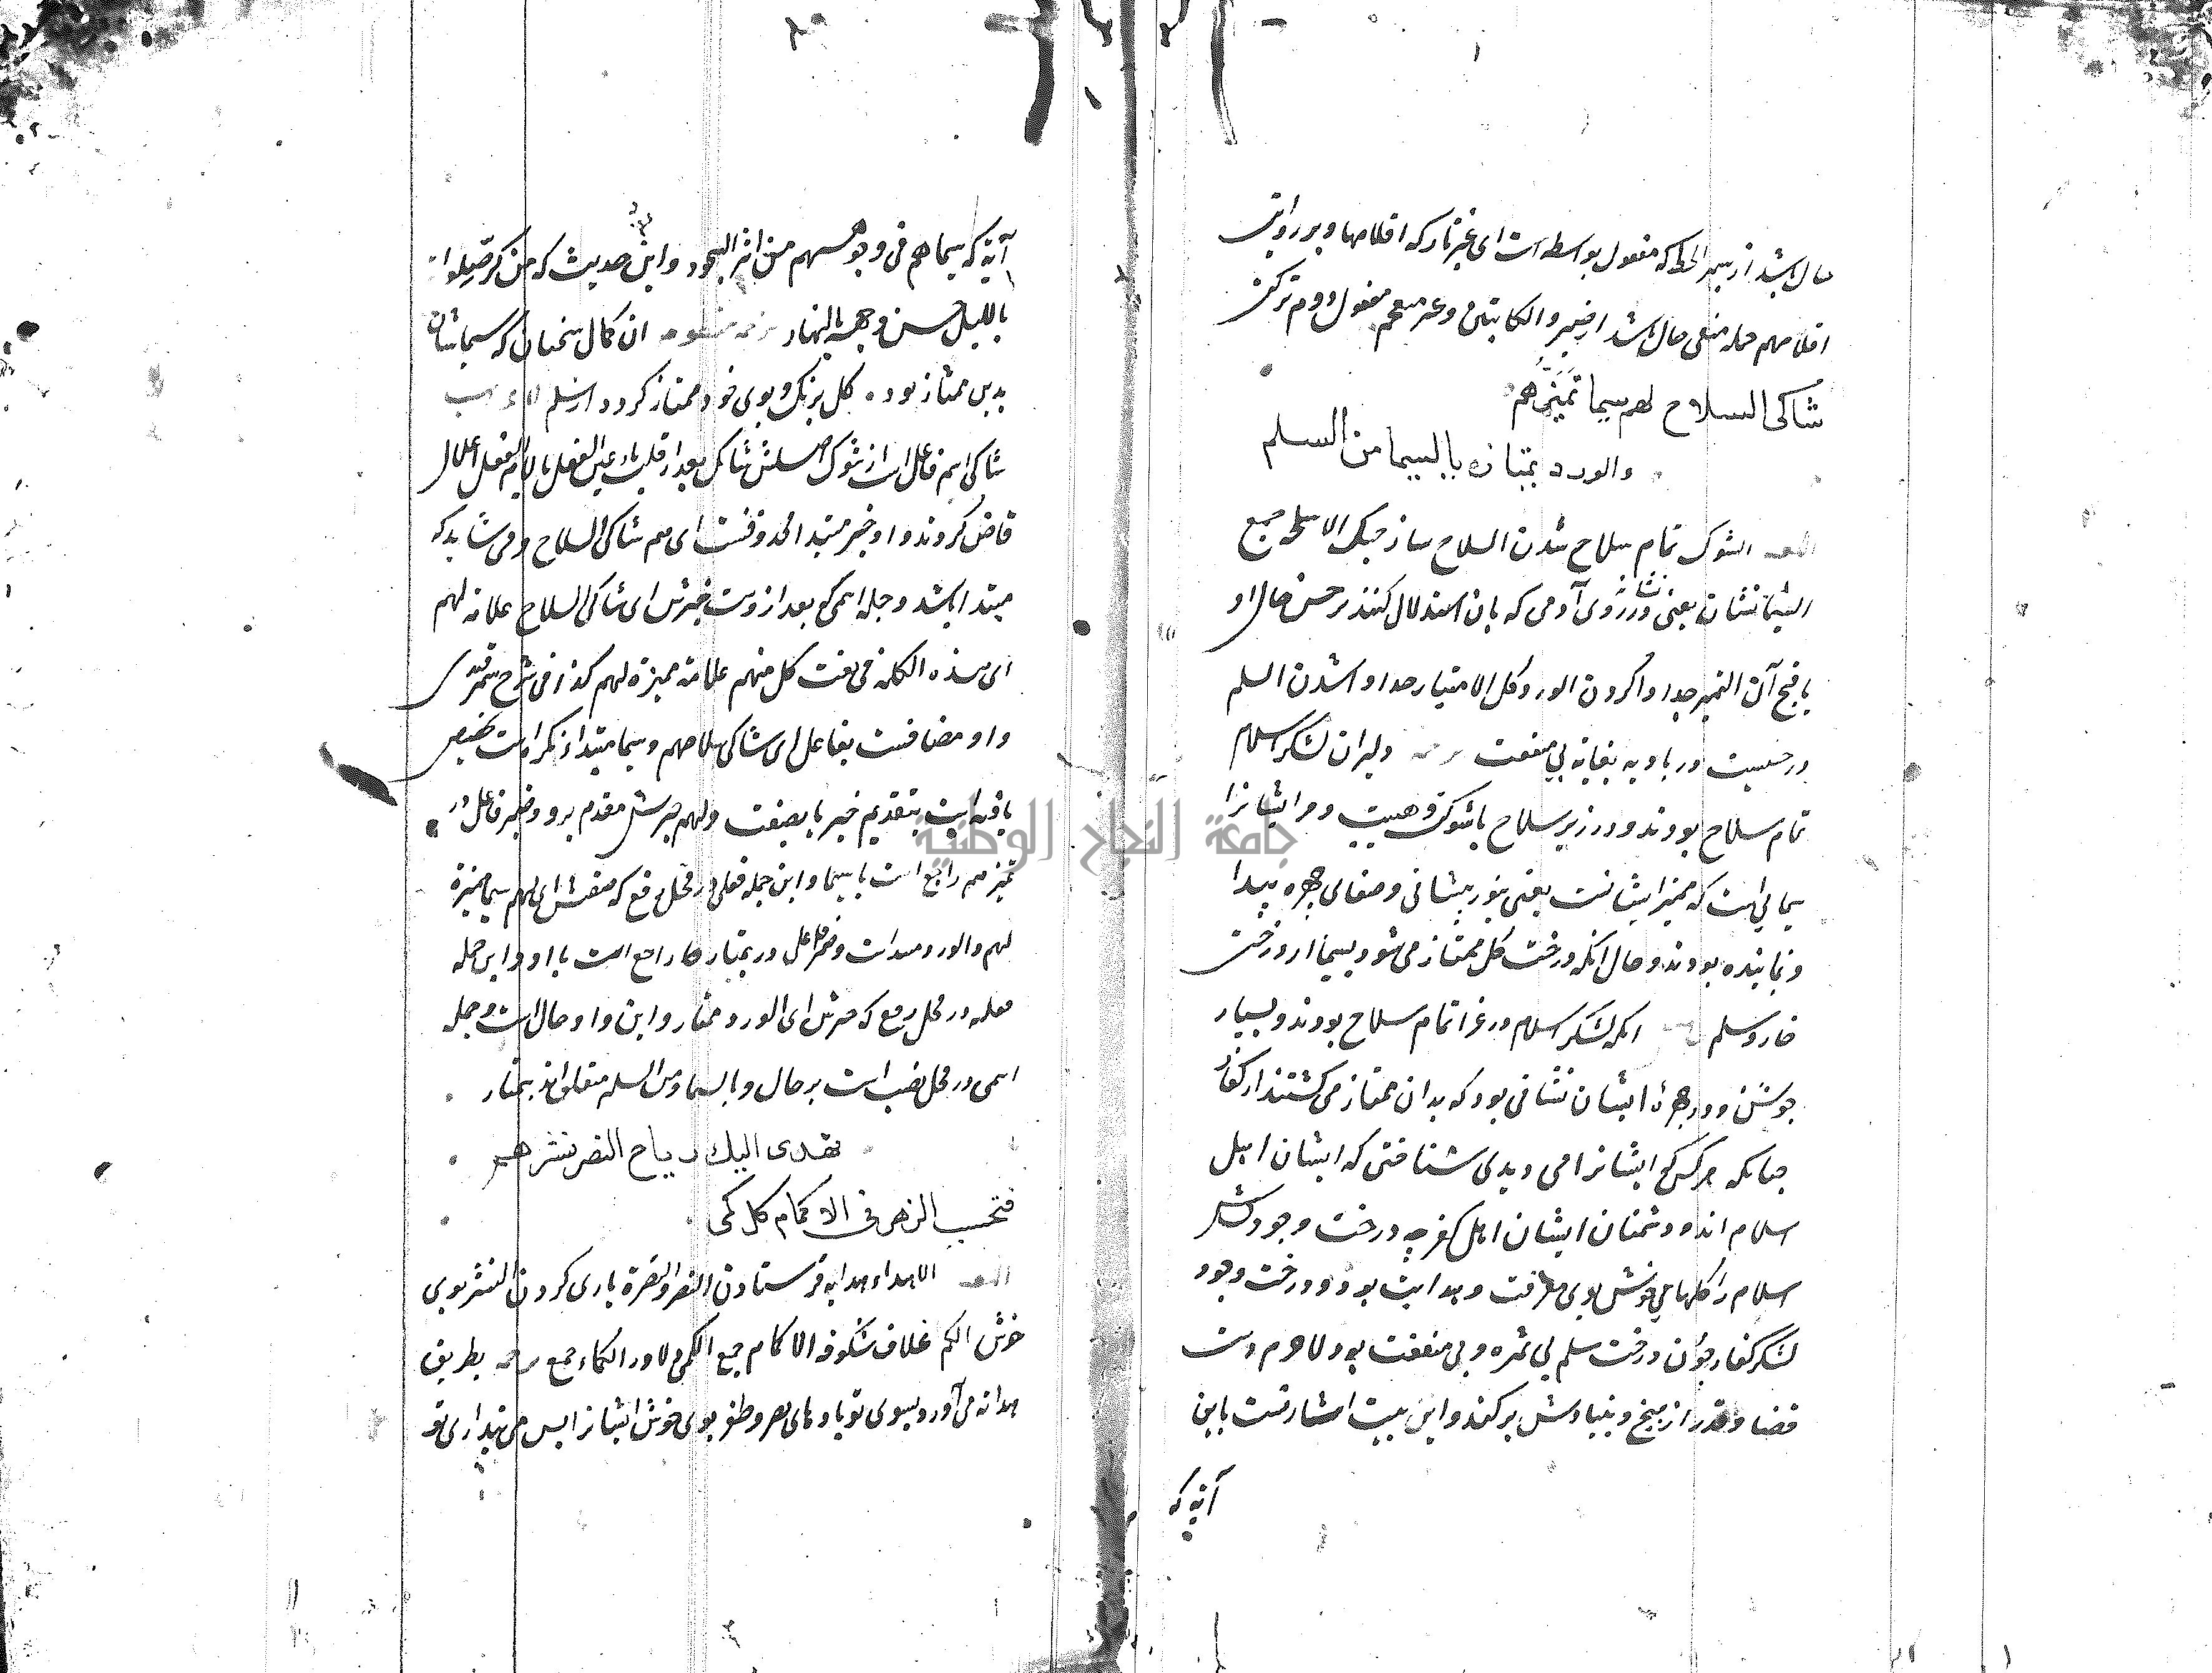 حال باشد از سمر الخط که مفعول بواسطه است ای غیر تارکه اقلامها و بر روایت
اقلامهم جمله منفی حال باشد از ضمیر والکاتبین و غیر منعجم مفعول دوم ترکت
شاکی السلاح لهم سیما تمیزهم
والورد یمتاز بالسیما من السلم
الشوک تمام سلاح شدن السلاح ساز جنک الاسلحة جمع
السیما نشان یعنی در روی آدمی که بان استدلال کنند بر حسن حال او
یا قبح آن التمیز جدا واکردن الورد کل الامتیاز جدا وا شدن السلم
درختیست در بادیه بغایة بی منفعت دلیران لشکر اسلام
تمام سلاح بودند و در زیر سلاح باشوکت و هیبت و مر ایشانرا
سیمایی است که ممیز ایشانست یعنی بنور پیشانی و صفای چهره پیدا
و نماینده بودند و حال آنکه درخت کل ممتاز می شود بسیما از درخت
خار و سلم انکه لشکر اسلام در غزا تمام سلاح بودند و بسیار
جوشن و در چهرهٔ ایشان نشانی بود که بدان ممتاز می کشتند از کفار
چنانکه هر کس که ایشانرا می دیدی شناختی که ایشان اهل
اسلام اند و دشمنان ایشان اهل کفر چه درخت وجود لشکر
اسلام را کلهای خوش بوی معرفت و هدایت بود و درخت وجود
لشکر کفار چون درخت سلم بی ثمره و بی منفعت بود لاجرم دست
قضا و قدر از بیخ و بنیادش برکند و این بیت اشارتست باین
آیة که
آیة که سیماهم فی وجوههم من اثر السجود و این حدیث که من کثر صلواته
باللیل حسن وجهه بالنهار ان کمال سخنان که سیماشان
بدین ممتاز بود کل برنک و بوی خود ممتاز کردد از سلم
شاکی اسم فاعل است از شوک اصلش شائک بعد از قلب یاء عین الفعل با لام الفعل اعلال
قاض کردند و او خبر مبتدا محذوفست ای هم شاکی السلاح و می شاید که
مبتدا باشد و جمله اسمی که بعد از وست خبرش ای شاکی السلاح علامة لهم
ای هذه الکلمة فی نعت کل منهم علامة ممیزة لهم کذا فی شرح سمرقندی
و او مضافست بفاعل ای شاکی سلاحهم و سیما مبتدا نکره است تخصیص
یافته است بتقدیم خبر یا بصفت و لهم خبرش مقدم برو و ضمیر فاعل در
تمیزهم راجع است با سیما و این جمله فعلی در محل رفع که صفتش ای لهم سیما ممیزة
لهم والورد مبتداست و ضمیر فاعل در یمتاز راجع است با او و این جمله
فعلیه در محل رفع که خبرش ای الورد ممتاز و این واو حال است و جمله
اسمی در محل نصب است بر حال و بالسیما و من السلم متعلق اند بیمتاز
تهدی الیک ریاح النصر نشرهم
فتحسب الزهر فی الاکمام کل کمی
الاهداء هدایه فرستادن النصر والنصرة یاری کردن النشر بوی
خوش الکم غلاف شکوفه الاکمام جمع الکمی دلاور الکماة جمع بطریق
هدایه می آورد بسوی تو بادهای نصر و ظفر بوی خوش ایشانرا پس می پنداری تو
جامعة النجاح الوطنية